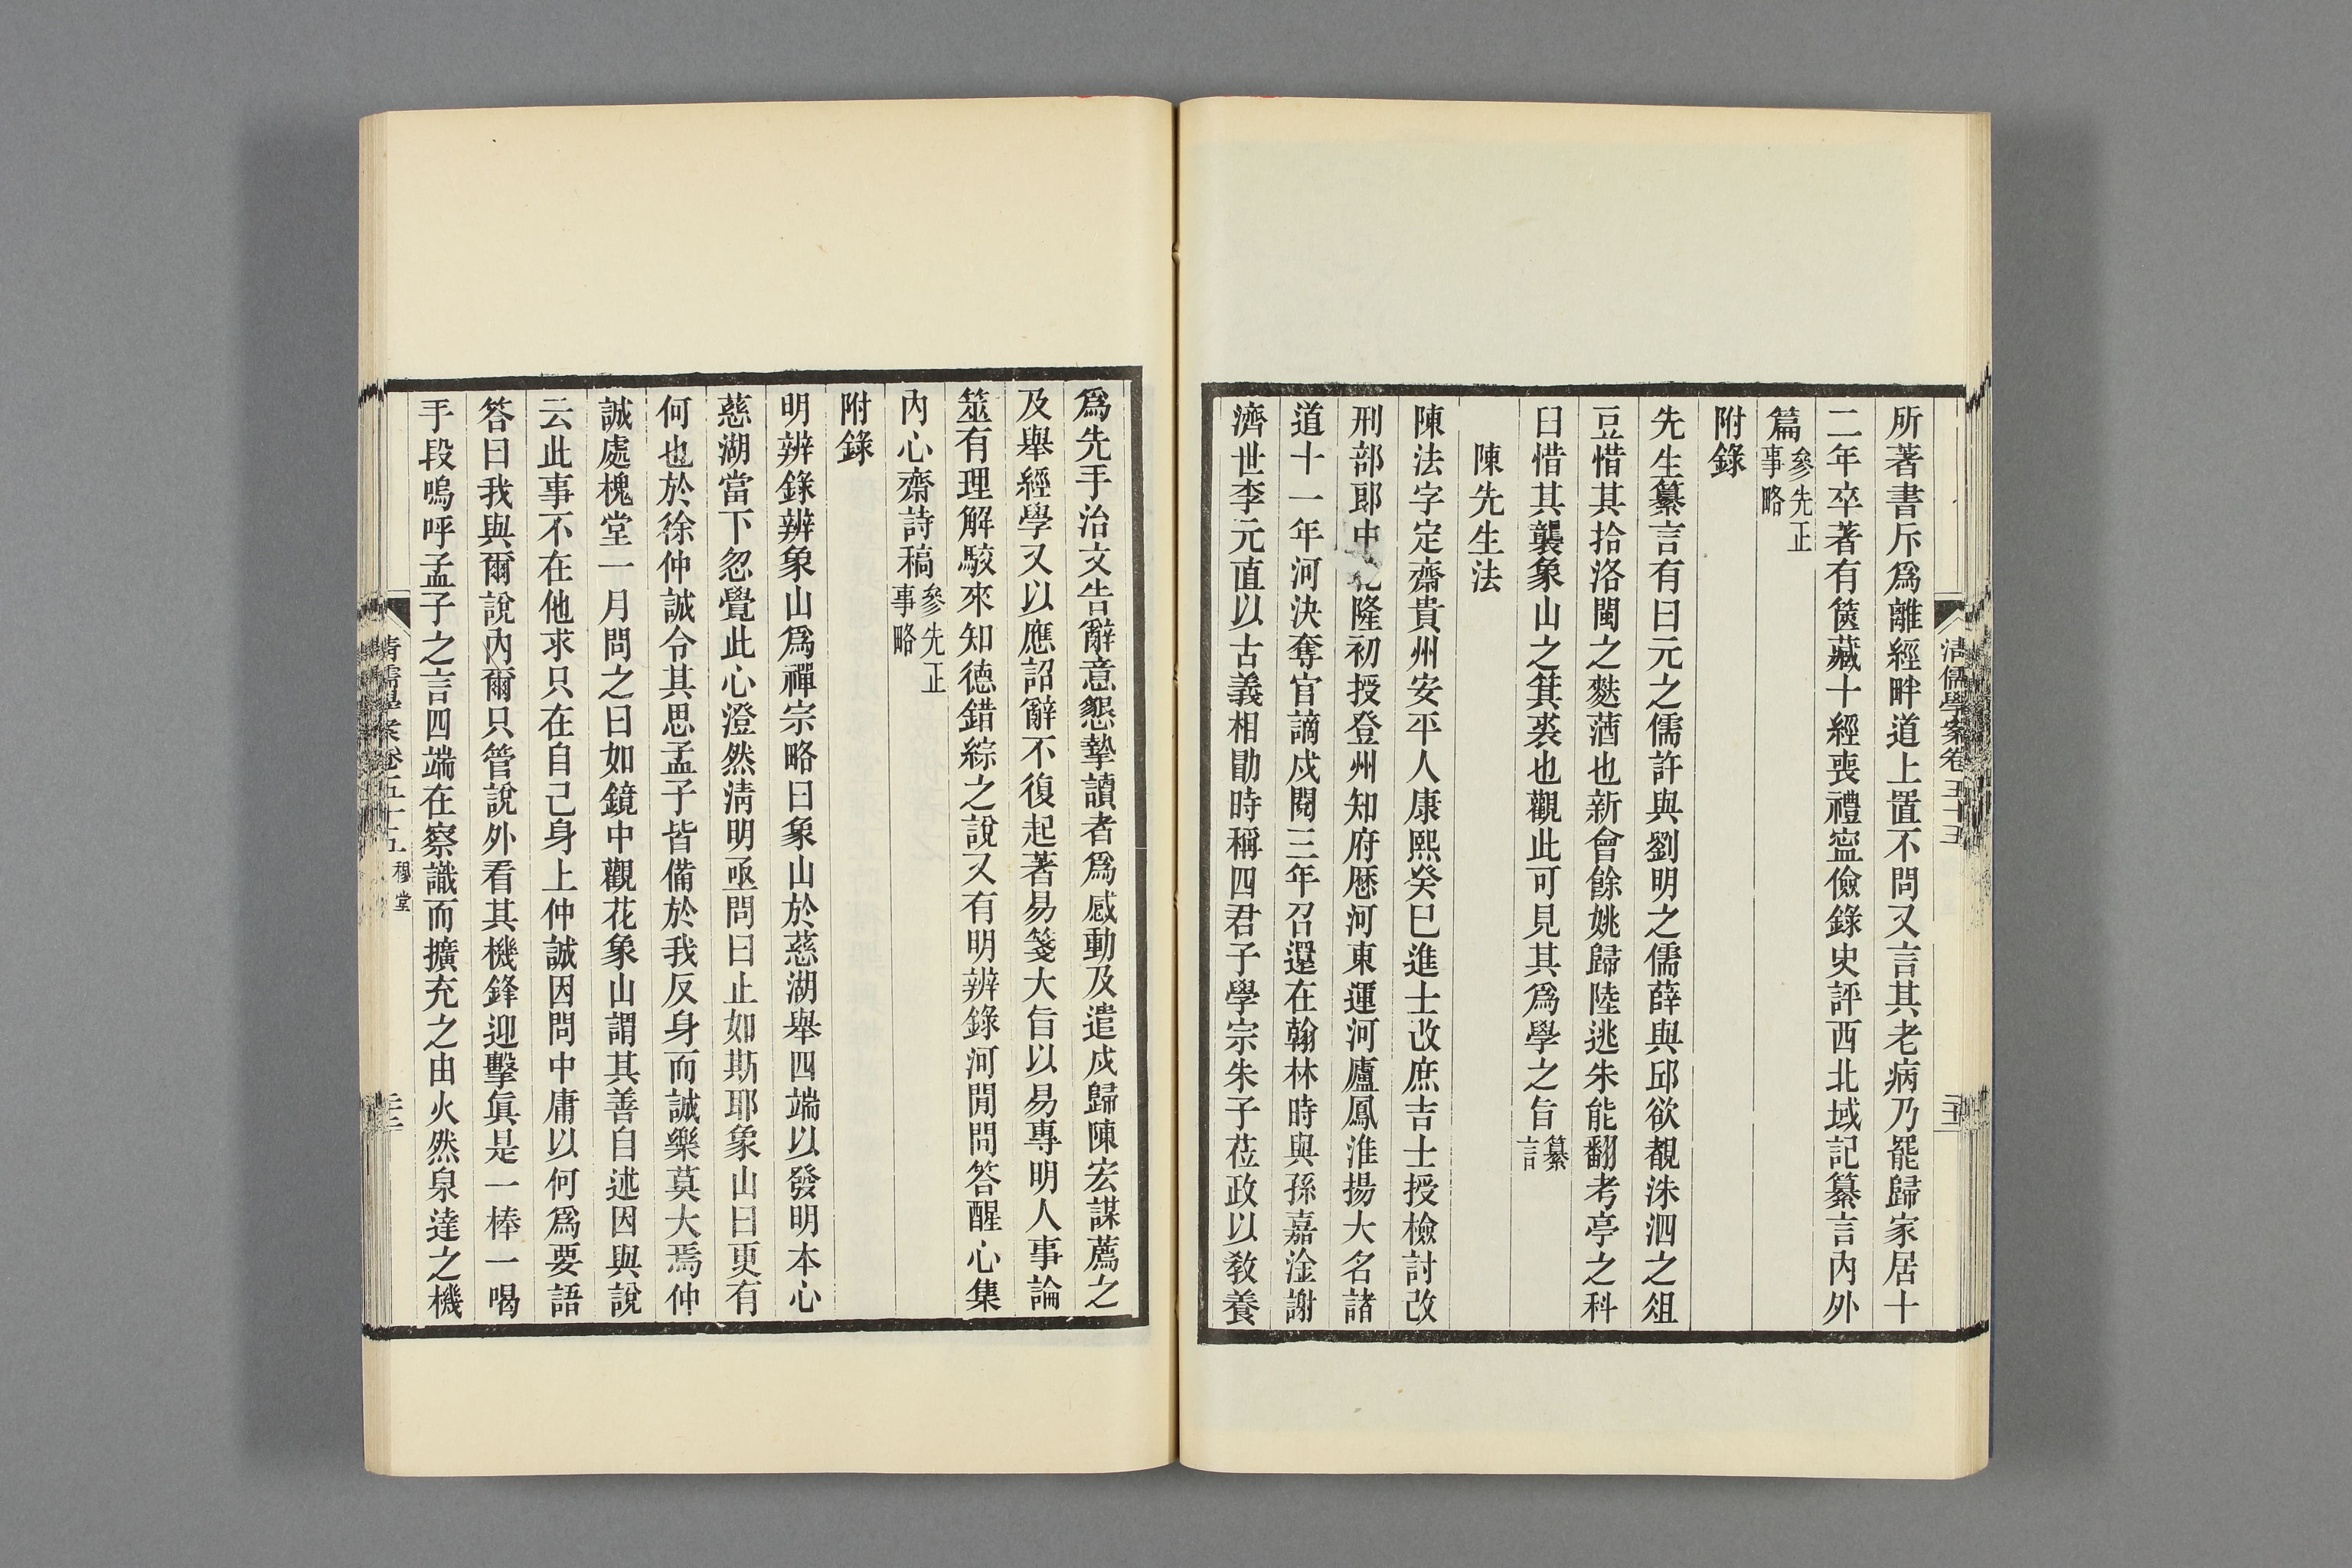 所著書斥爲離經畔道上置不問又言其老病乃罷歸家居十
二年卒著有篋藏十經喪禮寍儉錄史評西北域記纂言內外
篇參先正事略
附錄
先生纂言有曰元之儒許與劉明之儒薛與邱欲覩洙泗之俎
豆惜其拾洛閩之麩蕕也新會餘姚歸陸逃朱能翻考亭之科
臼惜其襲象山之箕裘也觀此可見其爲學之旨纂言
陳先生法
陳法字定齋貴州安平人康熙癸巳進士改庶吉士授檢討改
刑部郎中乾隆初授登州知府歷河東運河廬鳳淮揚大名諸
道十一年河決奪官謫戍閱三年召還在翰林時與孫嘉淦謝
濟世李元直以古義相勖時稱四君子學宗朱子莅政以敎養
清儒學案卷五十五
爲先手治文告辭意懇摯讀者爲感動及遣戍歸陳宏謀薦之
及舉經學又以應詔辭不復起著易箋大旨以易專明人事論
筮有理解駮來知德錯綜之說又有明辨錄河閒問答醒心集
內心齋詩稿參先正事略
附錄
明辨錄辨象山爲禪宗略曰象山於慈湖舉四端以發明本心
慈湖當下忽覺此心澄然淸明亟問曰止如斯耶象山曰更有
何也於徐仲誠令其思孟子皆備於我反身而誠樂莫大焉仲
誠處槐堂一月問之曰如鏡中觀花象山謂其善自述因與說
云此事不在他求只在自己身上仲誠因問中庸以何爲要語
答曰我與爾說內爾只管說外看其機鋒迎擊眞是一棒一喝
手段嗚呼孟子之言四端在察識而擴充之由火然泉達之機
清儒學案卷五十五 穆堂